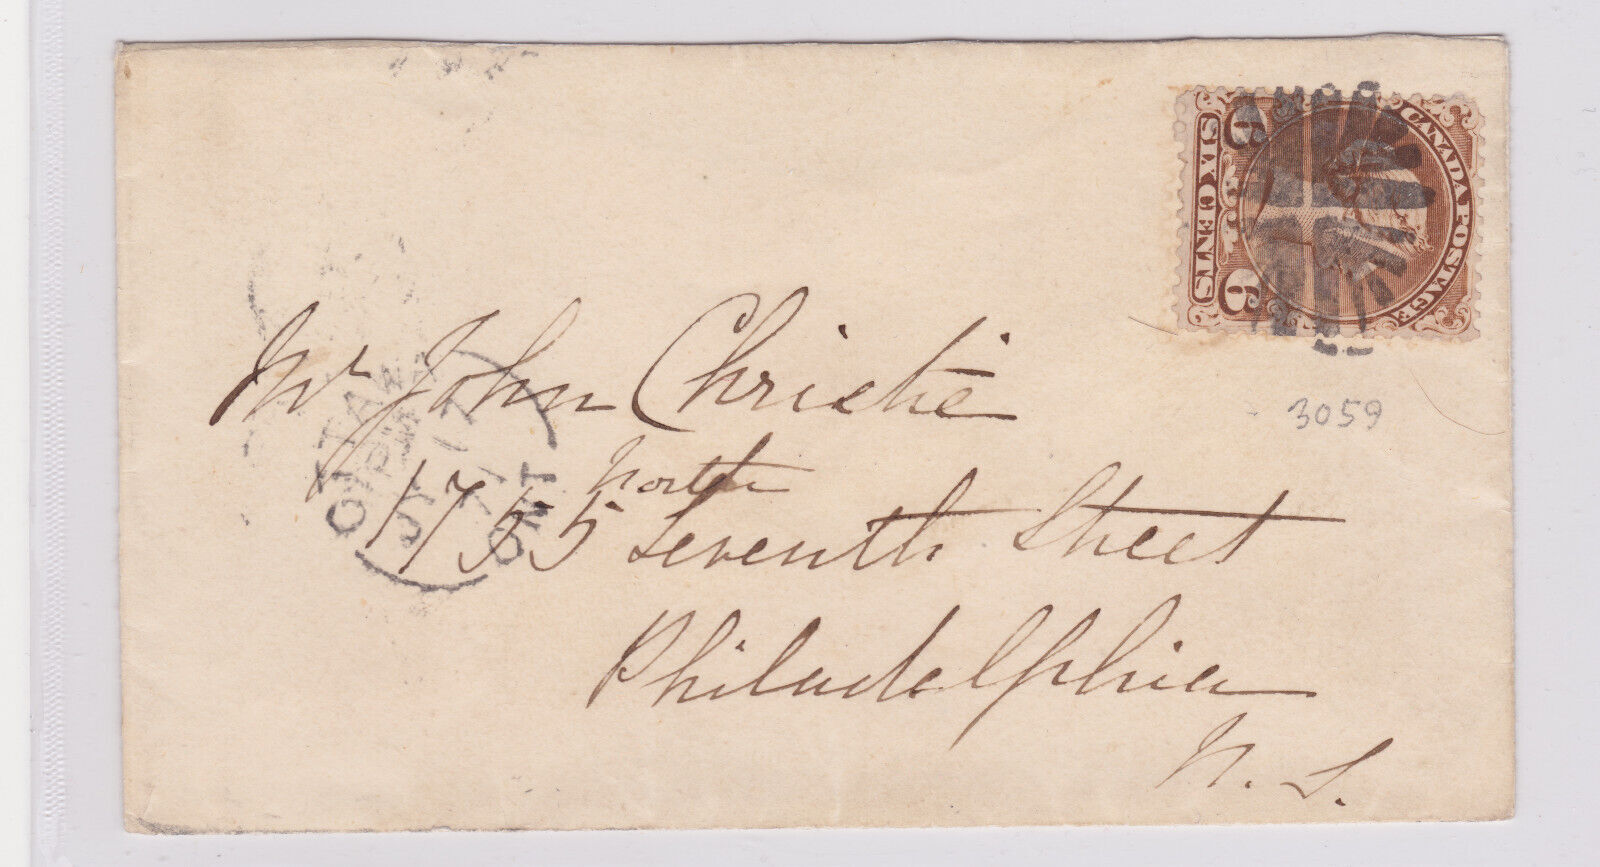 CANADA POSTAGE
6 6
SIX CENTS
3059
Mr John Christie
North
1755 Seventh Street
Philadelphia
OTTAWA
PM
JY 17
71
ONT